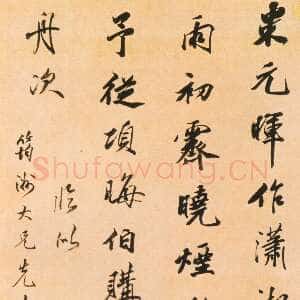 米元暉作瀟湘
雨初霽曉煙
予從項晦伯購
舟次
臨似
篛洲大兄先
Shufawang.CN